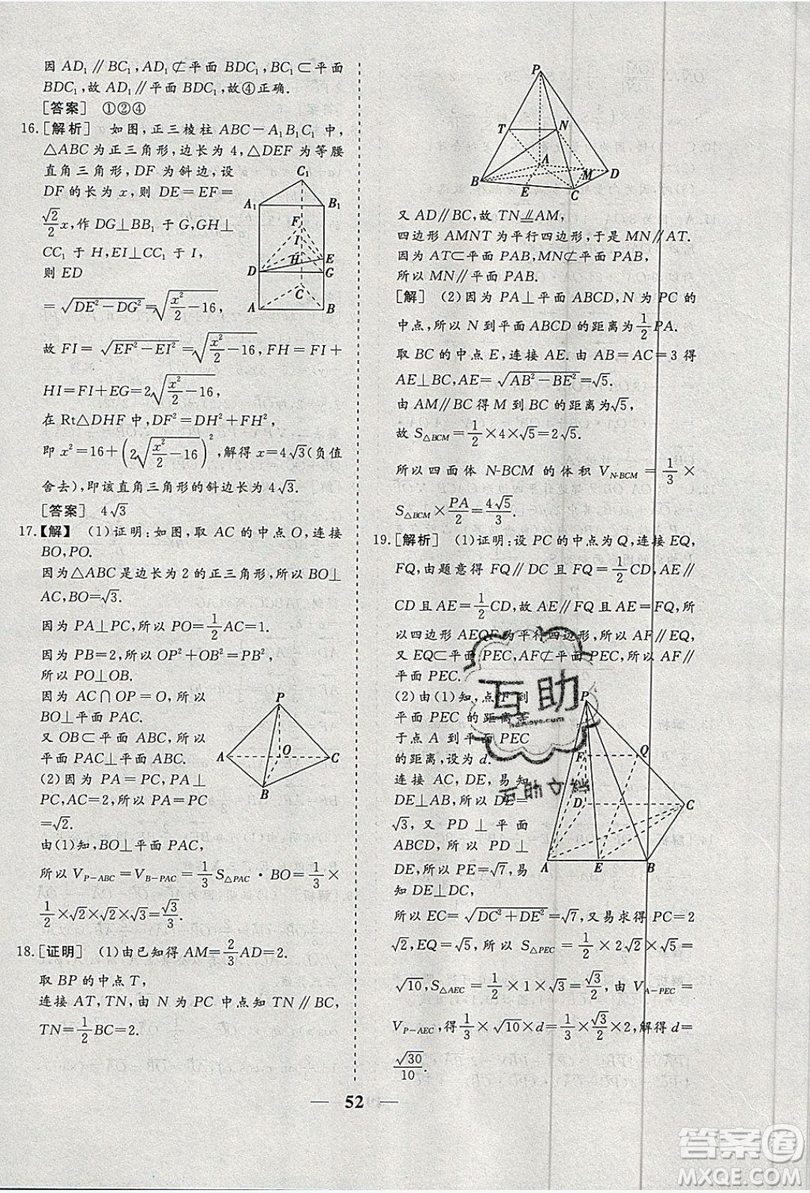 因为 AD₁∥BC₁，AD₁⊄平面 BDC₁，BC₁⊂平面
BDC₁，故 AD₁∥平面 BDC₁，故④正确.
[答案] ①②④
16.[解析] 如图，正三棱柱 ABC－A₁B₁C₁ 中，
△ABC 为正三角形，边长为 4，△DEF 为等腰
直角三角形，DF 为斜边，设
DF 的长为 x，则 DE＝EF＝
√2/2 x，作 DG⊥BB₁ 于 G，GH⊥
CC₁ 于 H，EI⊥CC₁ 于 I，
则 ED
＝√(DE²－DG²)＝√(x²/2－16)，
故 FI＝√(EF²－EI²)＝√(x²/2－16)，FH＝FI＋
HI＝FI＋EG＝2√(x²/2－16)，
在 Rt△DHF 中，DF²＝DH²＋FH²，
即 x²＝16＋(2√(x²/2－16))²，解得 x＝4√3(负值
舍去)，即该直角三角形的斜边长为 4√3.
[答案] 4√3
A₁ C₁ B₁ F I H E D G C A B
17.【解】 (1)证明：如图，取 AC 的中点 O，连接
BO，PO.
因为△ABC 是边长为 2 的正三角形，所以 BO⊥
AC，BO＝√3.
因为 PA⊥PC，所以 PO＝1/2 AC＝1.
因为 PB＝2，所以 OP²＋OB²＝PB²，
所以 PO⊥OB.
因为 AC∩OP＝O，所以
BO⊥平面 PAC.
又 OB⊂平面 ABC，所以
平面 PAC⊥平面 ABC.
(2)因为 PA＝PC＝2，
PA⊥PC，AC＝2，所以 PA＝PC＝
√2.
由(1)知，BO⊥平面 PAC，
所以 V_P-ABC＝V_B-PAC＝1/3 S△PAC·BO＝1/3×
1/2×√2×√2×√3＝√3/3.
P A O C B
18.[证明] (1)由已知得 AM＝2/3 AD＝2.
取 BP 的中点 T，
连接 AT，TN，由 N 为 PC 中点知 TN∥BC，
TN＝1/2 BC＝2.
P T N A M D B E C
又 AD∥BC，故 TN⫽AM，
四边形 AMNT 为平行四边形，于是 MN∥AT.
因为 AT⊂平面 PAB，MN⊄平面 PAB，
所以 MN∥平面 PAB.
[解] (2)因为 PA⊥平面 ABCD，N 为 PC 的
中点，所以 N 到平面 ABCD 的距离为 1/2 PA.
取 BC 的中点 E，连接 AE，由 AB＝AC＝3 得
AE⊥BC，AE＝√(AB²－BE²)＝√5.
由 AM∥BC 得 M 到 BC 的距离为√5，
故 S△BCM＝1/2×4×√5＝2√5.
所以四面体 N-BCM 的体积 V_N-BCM＝1/3×
S△BCM×PA/2＝4√5/3.
19.[解析] (1)证明：设 PC 的中点为 Q，连接 EQ，
FQ，由题意得 FQ∥DC 且 FQ＝1/2 CD，AE∥
CD 且 AE＝1/2 CD，故 AE∥FQ 且 AE＝FQ，所
以四边形 AEQF 为平行四边形，所以 AF∥EQ，
又 EQ⊂平面 PEC，AF⊄平面 PEC，所以 AF∥
平面 PEC.
(2)由(1)知，点 F 到
平面 PEC 的距离等
于点 A 到平面 PEC
的距离，设为 d.
连接 AC，DE，易知
DE＝√3，
又 PD⊥平面
ABCD，所以 PD⊥
DE，所以 PE＝√7，易知
DE⊥DC，
所以 EC＝√(DC²＋DE²)＝√7，又易求得 PC＝
2√2，EQ＝√5，故 S△PEC＝1/2×2√2×√5＝
√10，S△AEC＝1/2×1×√3＝√3/2，所以由 V_A-PEC＝
V_P-AEC，得 1/3×√10×d＝1/3×√3/2×2，解得 d＝
√30/10.
P F Q D C A E B
互助
52
答案圈
MXQE.COM